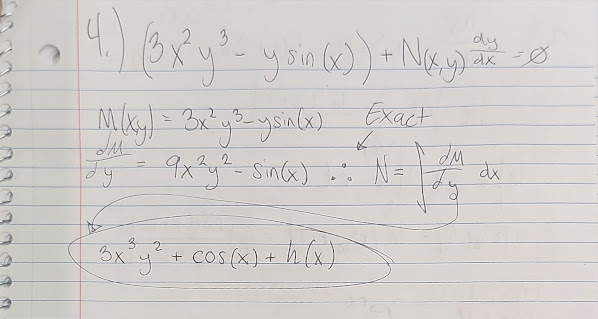 4.) (3x²y³ - y sin(x)) + N(x,y) dy/dx = ∅
M(x,y) = 3x²y³ - y sin(x) Exact
dM/dy = 9x²y² - sin(x) ∴ N = ∫ dM/dy dx
3x³y² + cos(x) + h(x)